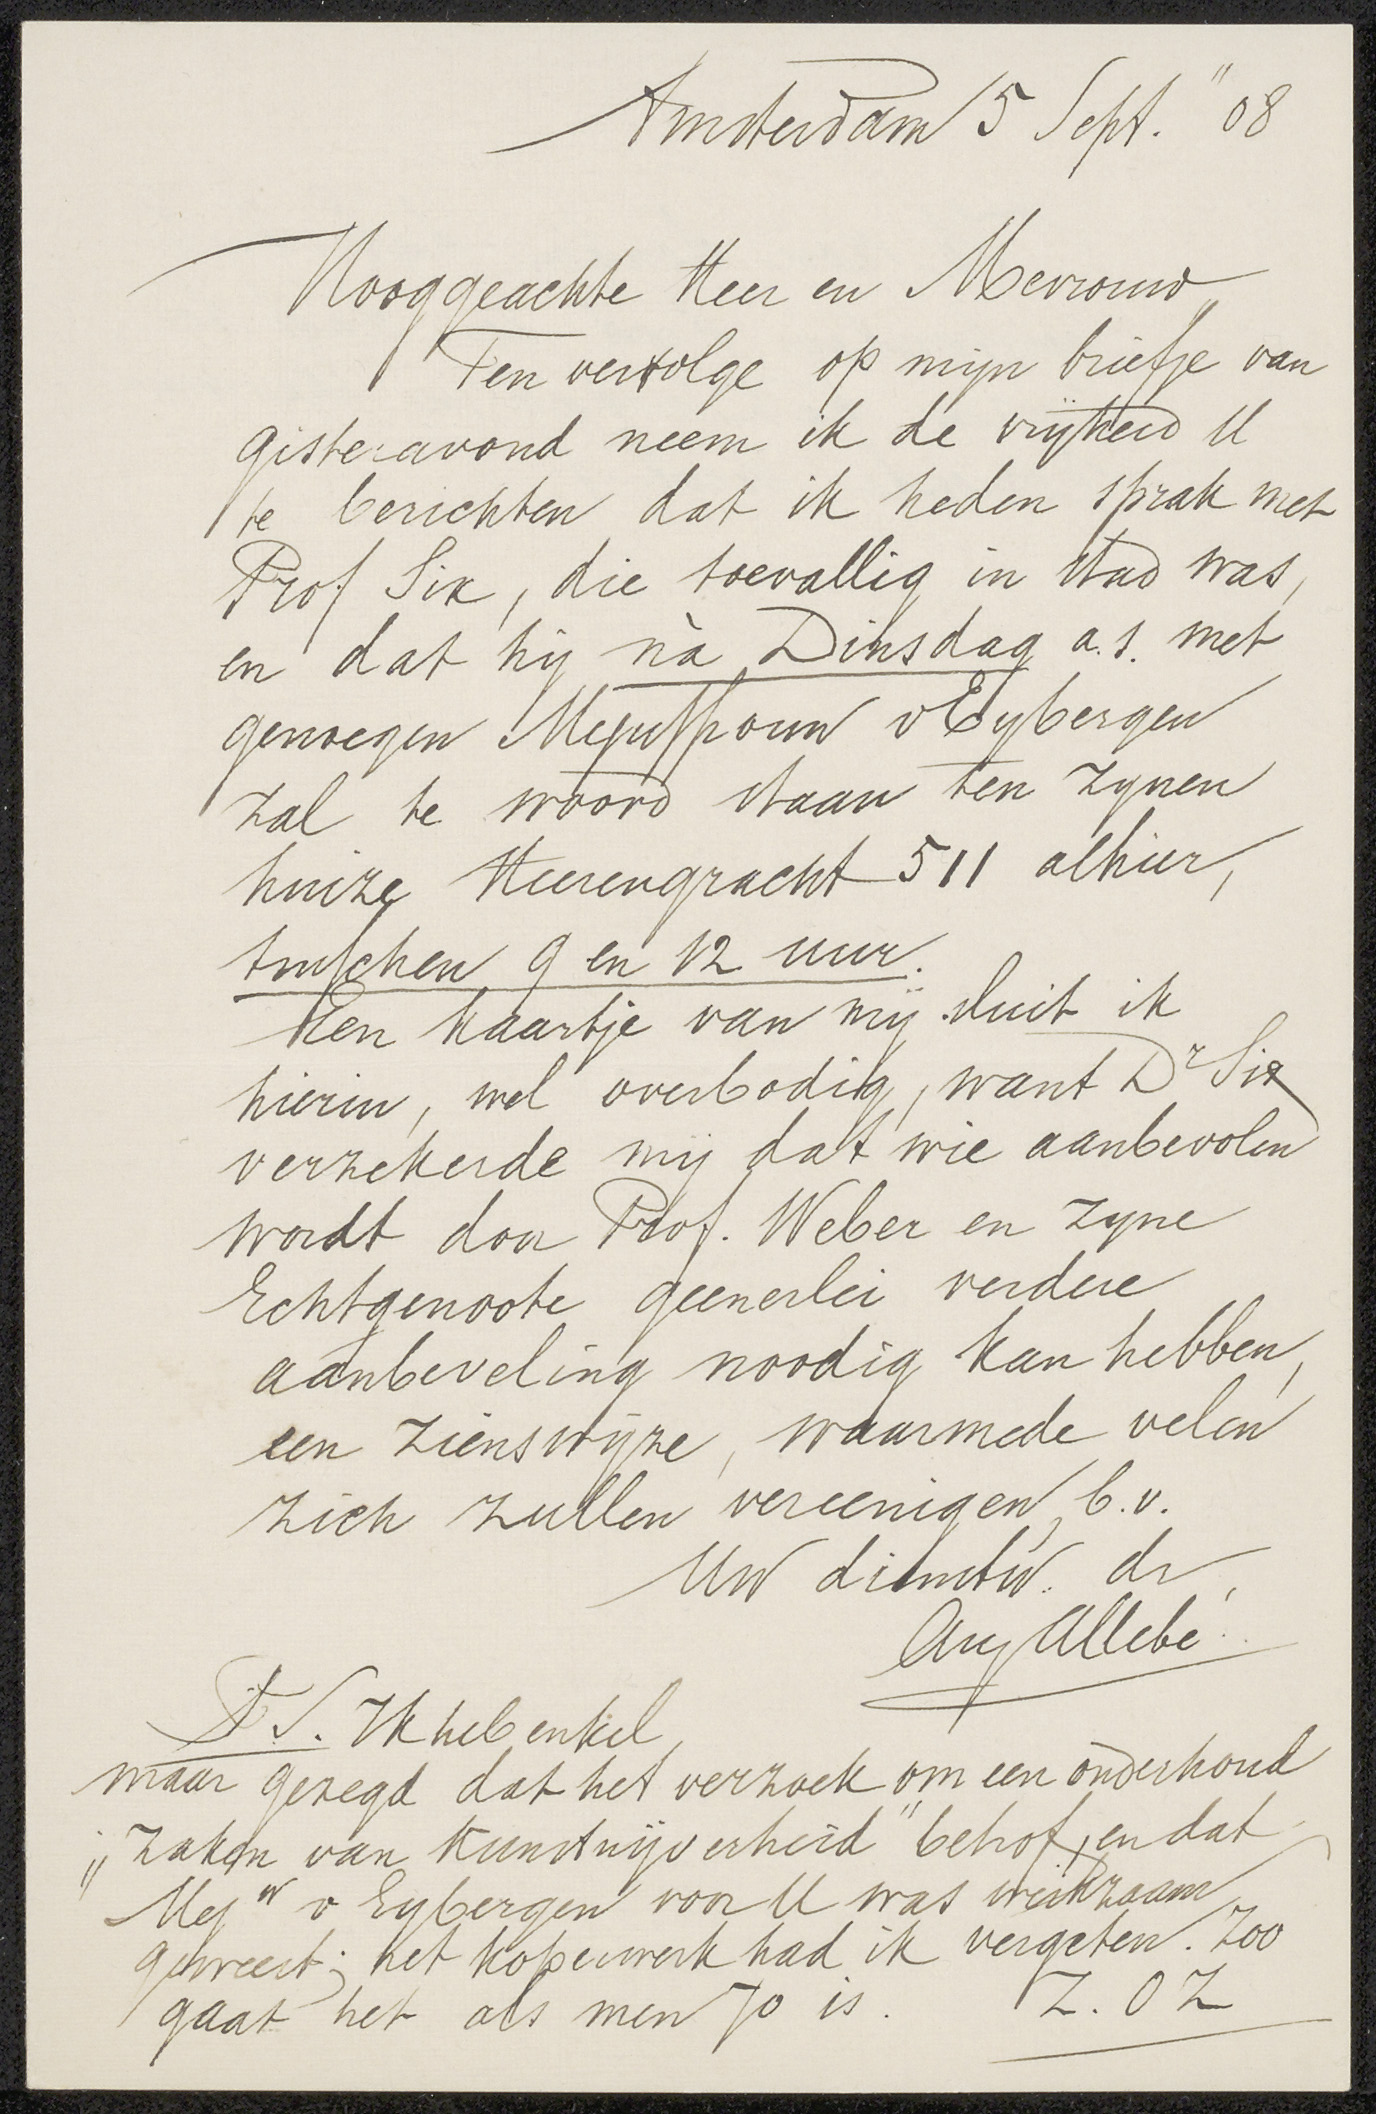 Amsterdam 5 Sept. "08
Hooggeachte Heer en Mevrouw
Ten vervolge op mijn briefje van
gisteravond neem ik de vrijheid U
te berichten dat ik heden sprak met
Prof Six, die toevallig in stad was,
en dat hij nà Dinsdag a.s. met
genoegen Mejuffrouw v Eybergen
zal te woord staan ten zynen
huize Heerengracht 511 alhier,
tusschen 9 en 12 uur.
Een kaartje van mij sluit ik
hierin, wel overbodig, want Dr Six
verzekerde mij dat wie aanbevolen
wordt door Prof. Weber en zyne
Echtgenoote geenerlei verdere
aanbeveling noodig kan hebben,
een zienswijze, waarmede velen
zich zullen vereenigen, b.v.
Uw dienstw. dr,
Aug Allebé
P.S. Ik heb enkel
maar gezegd dat het verzoek om een onderhoud
"zaken van Kunstnijverheid" betrof, en dat
Mejw v Eybergen voor U was werkzaam
geweest; het koperwerk had ik vergeten. Zoo
gaat het als men 70 is. Z.O.Z